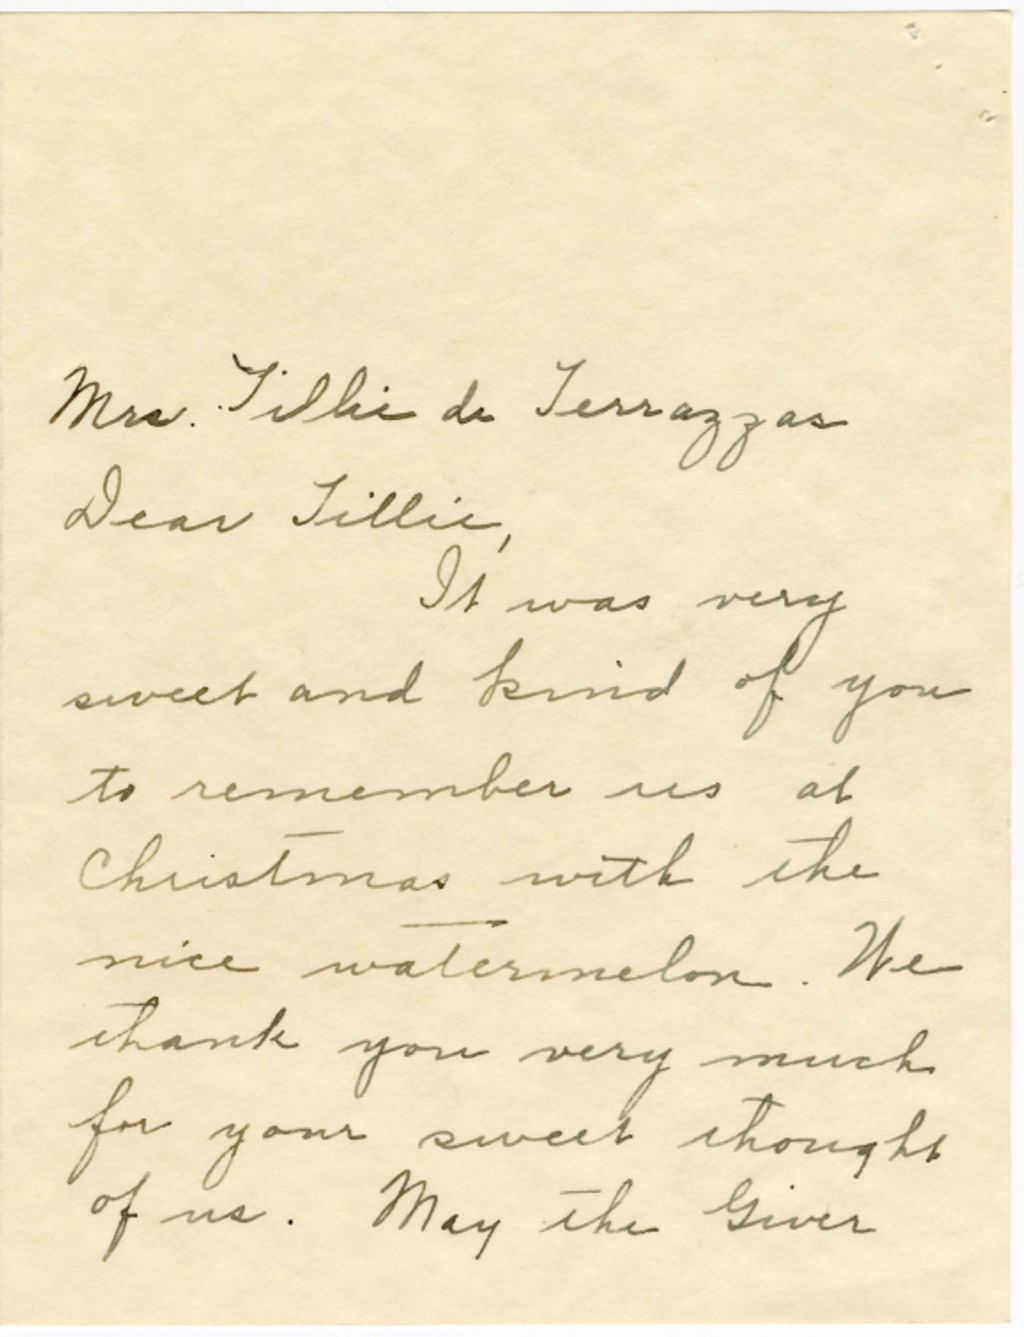 Mrs. Tillie de Terrazzas
Dear Tillie,
It was very
sweet and kind of you
to remember us at
Christmas with the
nice watermelon. We
thank you very much
for your sweet thought
of us. May the Giver